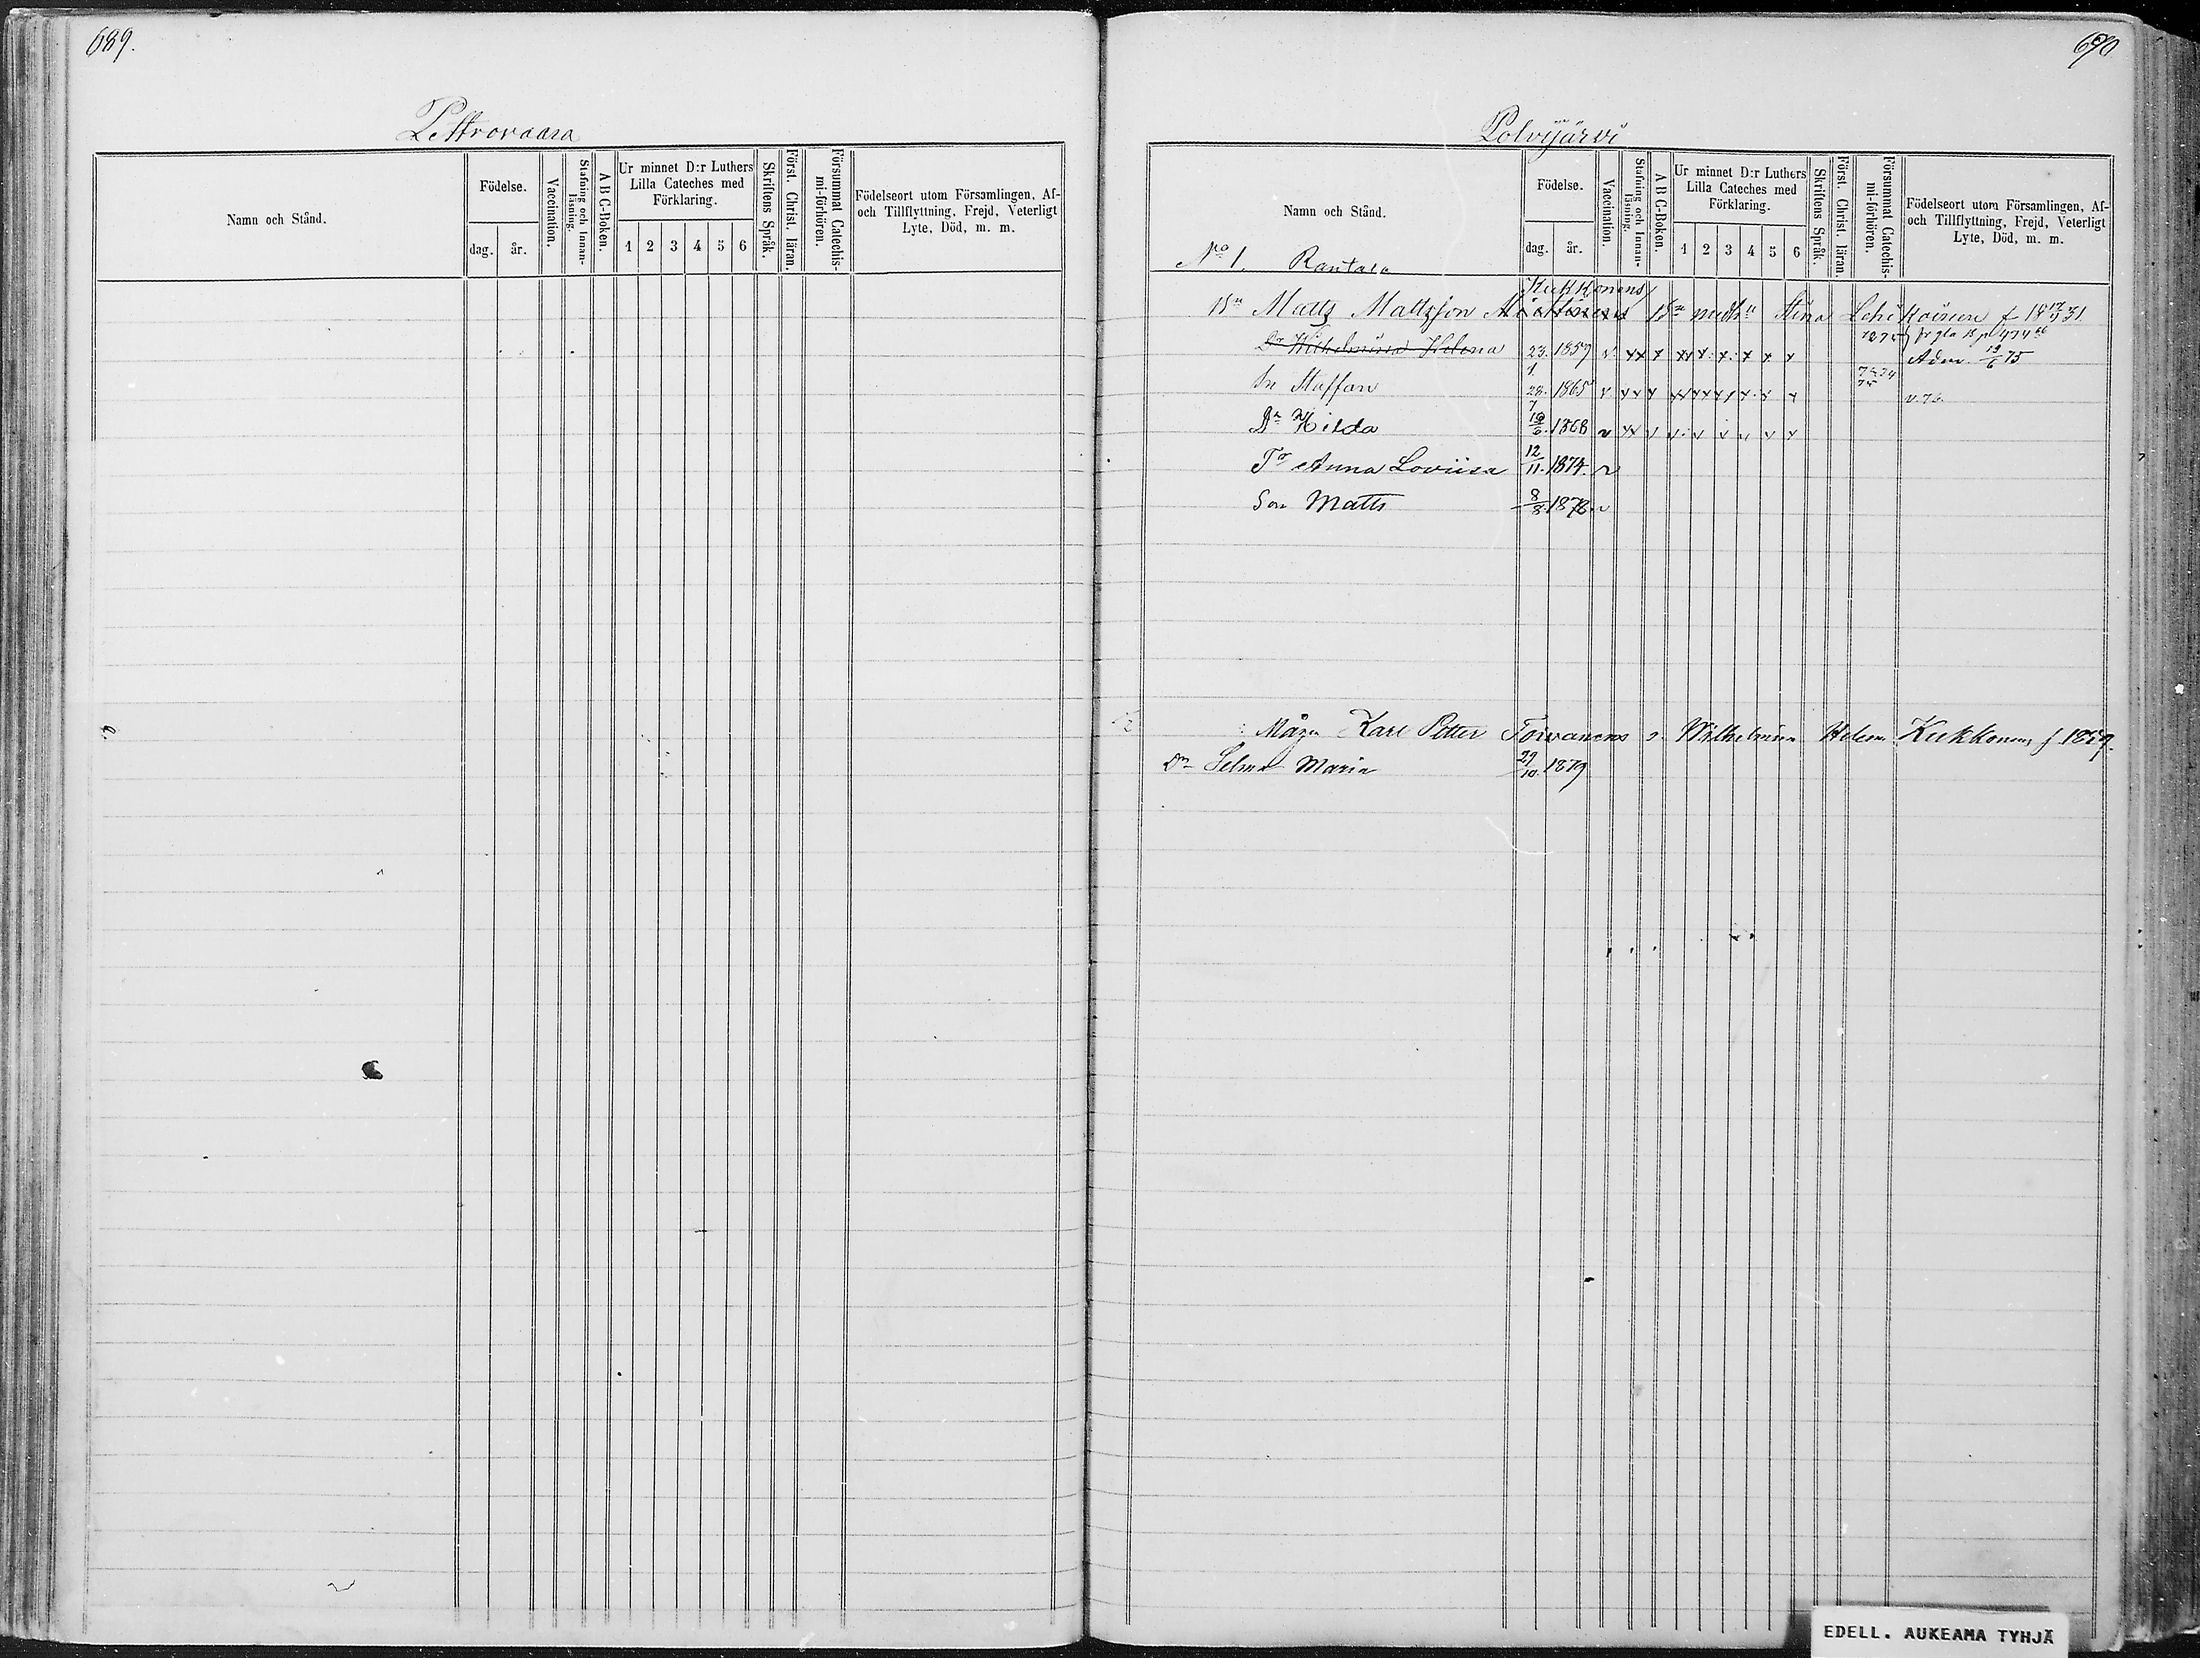 689.
Pettrovaara
Namn och Stånd.
Födelse.
dag.
år.
Vaccination.
Stafning och Innan-
läsning.
A B C-Boken.
Ur minnet D:r Luthers
Lilla Cateches med
Förklaring.
1 2 3 4 5 6
Skriftens Språk.
Först. Christ. läran.
Försummat Catechis-
mi-förhören.
Födelseort utom Församlingen, Af-
och Tillflyttning, Frejd, Veterligt
Lyte, Död, m. m.
690
Polvijärvi
Namn och Stånd.
Födelse.
dag.
år.
Vaccination.
Stafning och Innan-
läsning.
A B C-Boken.
Ur minnet D:r Luthers
Lilla Cateches med
Förklaring.
1 2 3 4 5 6
Skriftens Språk.
Först. Christ. läran.
Försummat Catechis-
mi-förhören.
Födelseort utom Församlingen, Af-
och Tillflyttning, Frejd, Veterligt
Lyte, Död, m. m.
No 1. Rantala
Kukkonens
Bn Matts Mattsson Stina Lehikoinen f 18 17/5 31
Dr Wilhelmina Helena 23/1 1859 Adm. 19/6 75
Sn Staffan 28/7 1865 v. 76.
Dr Hilda 10/6 1868
Dr Anna Loviisa 12/11 1874
Son Matts 8/8 1878
Måg Karl Petter Toivanens o. Wilhelmina Helena Kukkonens f 1859.
Dr Selma Maria 29/10 1879
EDELL. AUKEAMA TYHJÄ